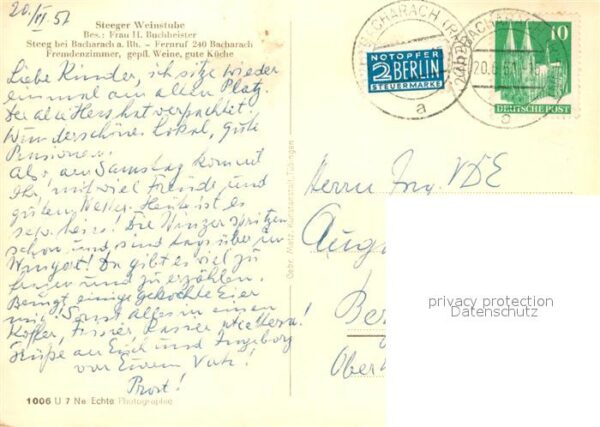 20./VI. 51
Steeger Weinstube
Bes.: Frau H. Buchheister
Steeg bei Bacharach a. Rh. - Fernruf 240 Bacharach
Fremdenzimmer, gepfl. Weine, gute Küche
Liebe Kinder, ich sitze wieder
einmal am alten Platz.
Der alte Herr hat verpachtet!
Wunderschönes Lokal, gute
Pensionen.
Also am Samstag kommt
Ihr mit viel Freude und
gutem Wetter. Heute ist es
sehr heiss! Die Winzer spritzen
schon und sind tagsüber im
Wingert! Da gibt es viel zu
und zu erzählen.
Bringt einige gekochte Eier
mit! Sonst alles in einen
Koffer,
Grüße an Euch und Ingeborg
von Eurem Vater!
Prost!
1006 U 7 Ne Echte Photographie
Gebr. Metz, Kunstanstalt, Tübingen
BACHARACH (RHEIN)
a
NOTOPFER
2 BERLIN
STEUERMARKE
BACHARACH
20.6.51
10
DEUTSCHE POST
Herrn Ing. VDE
Aug
Be
Ober
privacy protection
Datenschutz